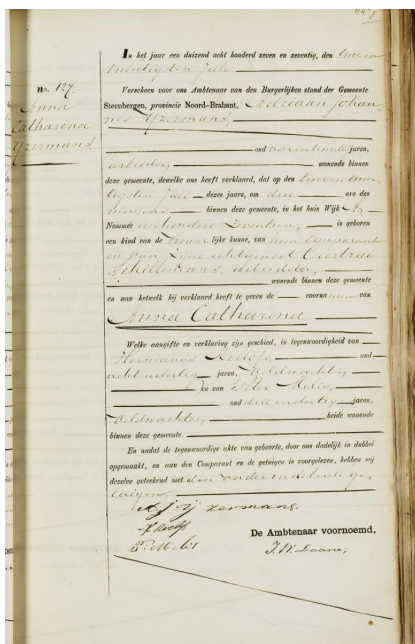 IN het jaar een duizend acht honderd zeven en zeventig, den twee en
twintigsten Julij
no. 127.
Anna
Catharina
Yzermans
Verscheen voor ons Ambtenaar van den Burgerlijken stand der Gemeente
Steenbergen, provincie Noord-Brabant, Adriaan Johan-
nes Yzermans,
oud jaren,
arbeider, wonende binnen
deze gemeente, dewelke ons heeft verklaard, dat op den twee en twin-
tigsten Julij dezes jaars, om drie ure des
morgens binnen deze gemeente, in het huis Wijk A
Nommer een honderd, is geboren
een kind van de vrouwelijke kunne, van hem comparant
en van zijne echtgenoot Geertrui
Schillemans, arbeidster,
wonende binnen deze gemeente
en aan hetwelk hij verklaard heeft te geven de voornamen van
Anna Catharina.
Welke aangifte en verklaring zijn geschied, in tegenwoordigheid van
Hermanus Roelofs, oud
achtendertig jaren, veldwachter
En van Peter Melis,
oud drieendertig jaren,
veldwachter, beide wonende
binnen deze gemeente.
En nadat de tegenwoordige akte van geboorte, door ons dadelijk in dubbel
opgemaakt, en aan den Comparant en de getuigen is voorgelezen, hebben wij
dezelve geteekend met den vader en beide ge-
tuigen.
A J Yzermans.
H Roelofs
P. Melis
De Ambtenaar voornoemd,